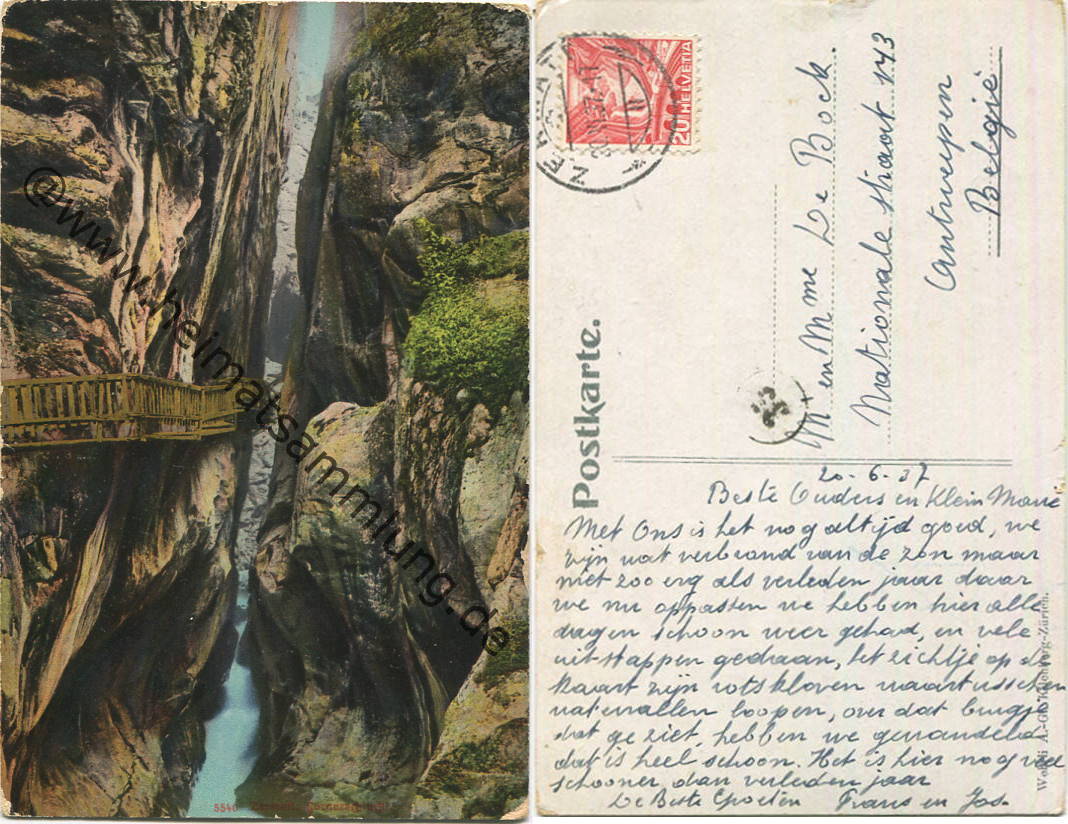 @www.heimatsammlung.de
5540
ZERMATT
20 HELVETIA
Postkarte.
Mr en Mme De Bock
Nationale straat 143
Antwerpen
België
20-6-37
Beste Ouders en Klein Marie
Met Ons is het nog altijd goed, we
zijn wat verbrand van de zon maar
niet zoo erg als verleden jaar daar
we nu oppassen we hebben hier alle
dagen schoon weer gehad, en vele
uitstappen gedaan, het zichtje op de
kaart zijn rotskloven waartusschen
watervallen loopen, over dat brugje
dat ge ziet, hebben we gewandeld
dat is heel schoon. Het is hier nog veel
schooner dan verleden jaar
De Beste Groeten Frans en Jos.